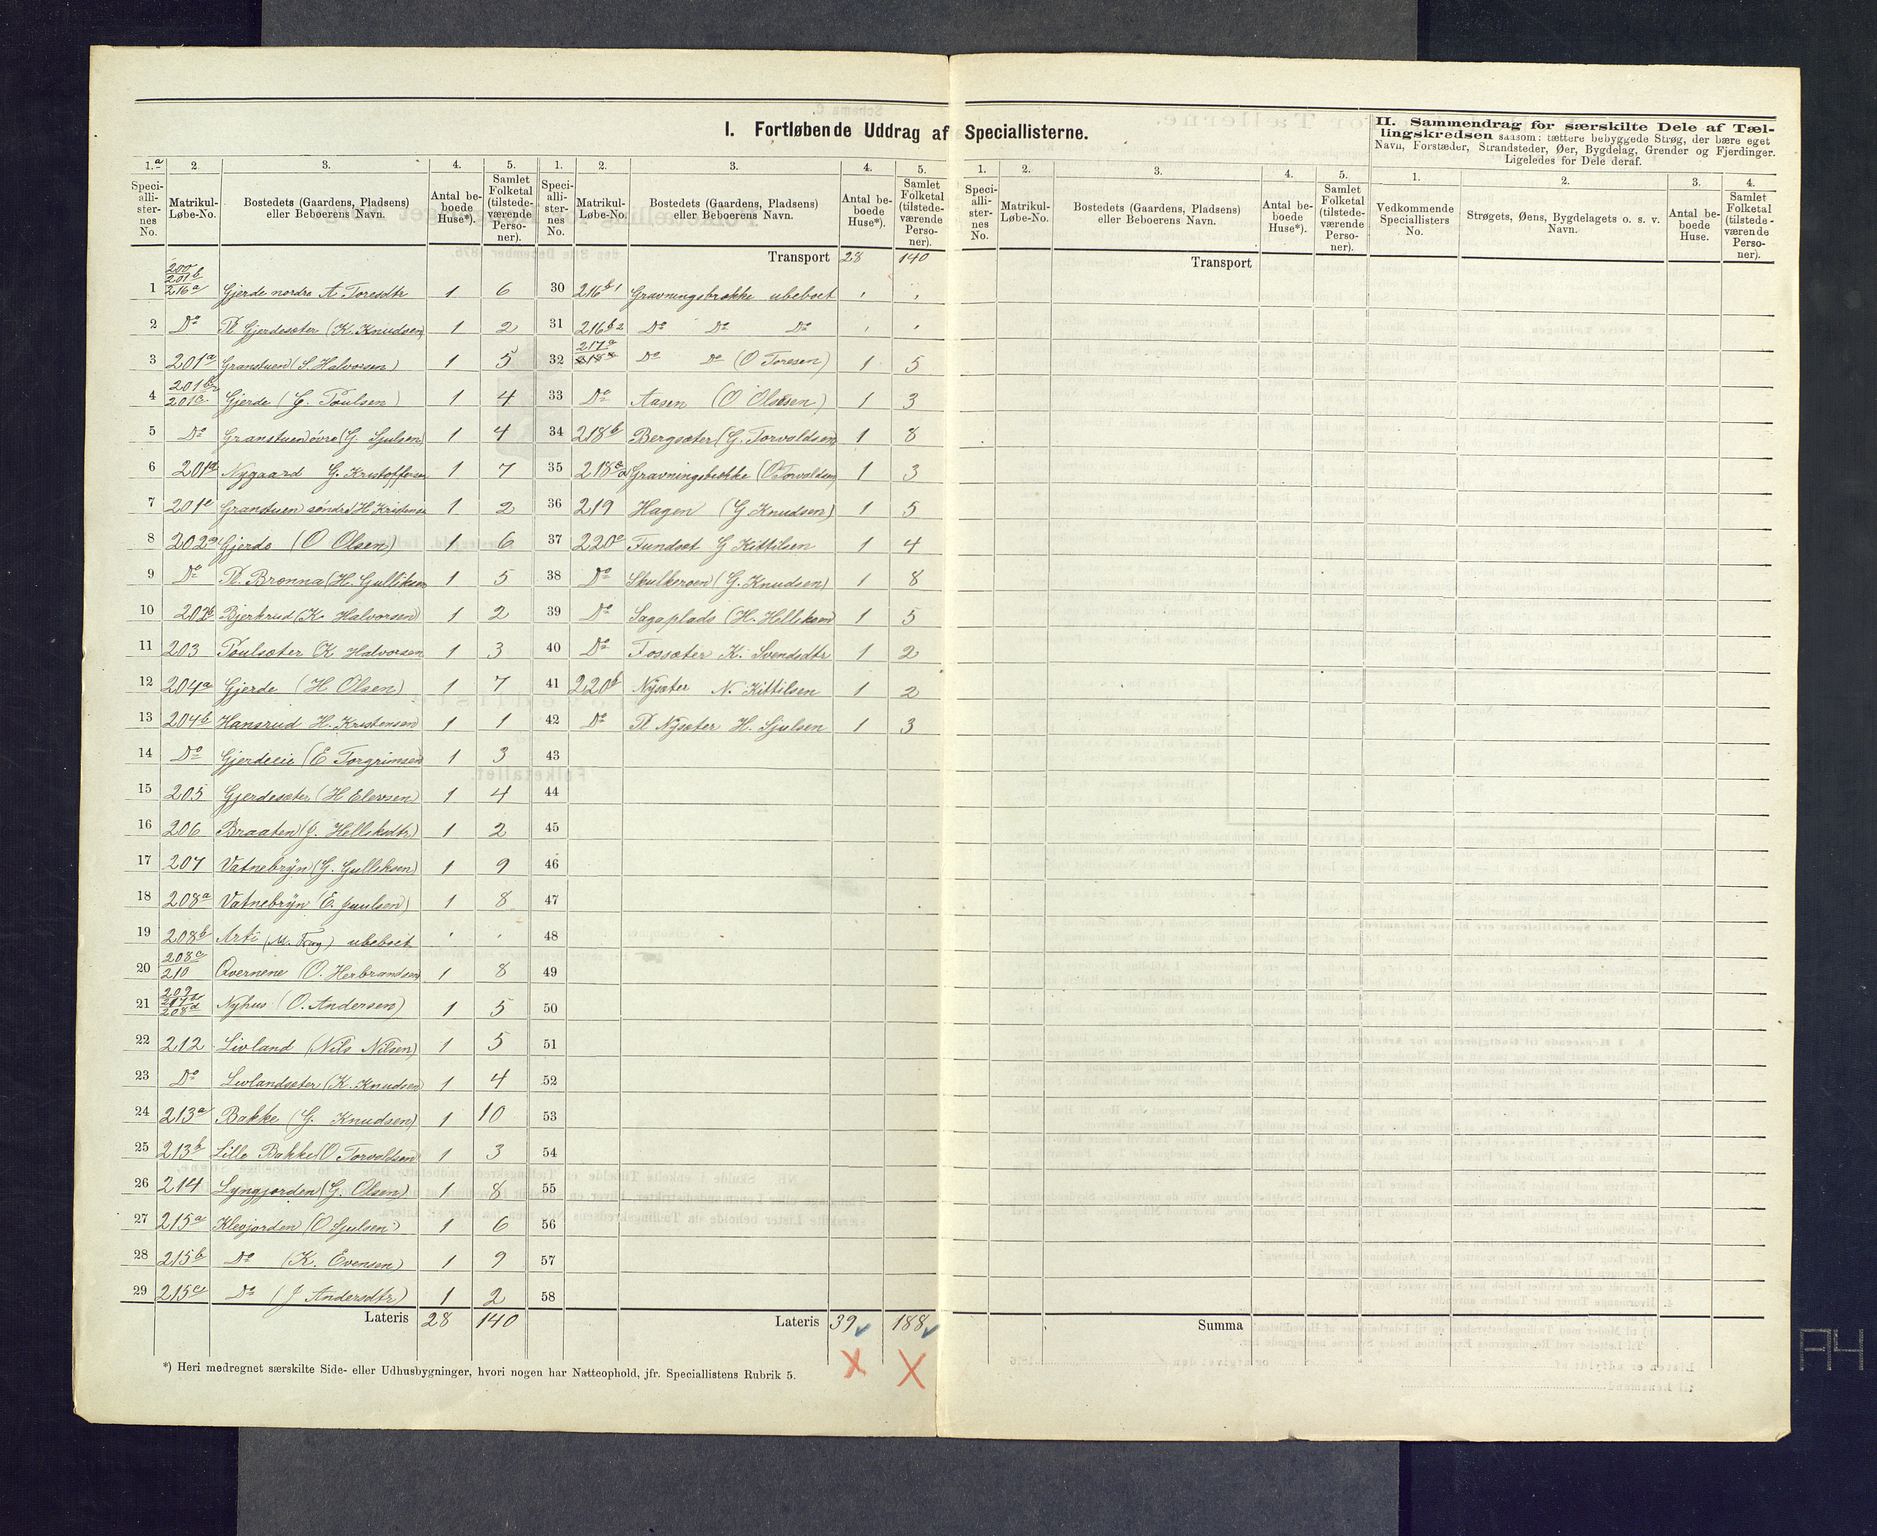 I. Fortløbende Uddrag af Speciallisterne.
II. Sammendrag for særskilte Dele af Tæl-
lingskredsen saasom: tættere bebyggede Strøg, der bære eget
Navn, Forstæder, Strandsteder, Øer, Bygdelag, Grender og Fjerdinger.
Ligeledes for Dele deraf.
1.a 2. 3. 4. 5. 1. 2. 3. 4. 5. 1. 2. 3. 4. 5. 1. 2. 3. 4.
Speciallisternes No. Matrikul-Løbe-No. Bostedets (Gaardens, Pladsens) eller Beboerens Navn. Antal beboede Huse*). Samlet Folketal (tilstedeværende Personer).
Speciallisternes No. Matrikul-Løbe-No. Bostedets (Gaardens, Pladsens) eller Beboerens Navn. Antal beboede Huse*). Samlet Folketal (tilstedeværende Personer).
Speciallisternes No. Matrikul-Løbe-No. Bostedets (Gaardens, Pladsens) eller Beboerens Navn. Antal beboede Huse*). Samlet Folketal (tilstedeværende Personer).
Vedkommende Speciallisters No. Strøgets, Øens, Bygdelagets o. s. v. Navn. Antal beboede Huse. Samlet Folketal (tilstedeværende Personer).
1 200 201b 216a Gjerde nordre A Toresdtr 1 6
2 Do Pl Gjerdesæter (K. Knudsen) 1 2
3 201a Granstuen (S. Halvorsen) 1 5
4 Gjerde (G. Poulsen) 1 4
5 Do Granstuen øvre (G. Sjulsen) 1 4
6 201d Nygaard G. Kristoffersen 1 7
7 201e Granstuen søndre H Kristensen 1 2
8 202a Gjerde (O Olsen) 1 6
9 Do Pl. Brønna (H. Gulliksen 1 5
10 202b Bjerkrud (K. Halvorsen) 1 2
11 203 Poulsæter (K Halvorsen 1 3
12 204a Gjerde (H Olsen) 1 7
13 204b Hansrud H. Kristensen 1 1
14 Do Gjerdeeie (E Torgrimsen 1 3
15 205 Gjerdesæter (H Elevsen) 1 4
16 206 Braaten (J. Helliksdtr) 1 2
17 207 Vatnebrÿn (G. Gulliksen) 1 9
18 208a Vatnebrÿn (E. Juulsen) 1 8
19 208b Arti ubeboet
20 208c 210 Qvernene (O. Herbrandsen 1 8
21 209 208d Nyhus (O. Andersen) 1 5
22 212 Livland (Nils Nilsen) 1 5
23 Do Livlandsæter (K. Knudsen 1 4
24 213a Bakke (G. Knudsen) 1 10
25 213b Lille Bakke (O Torvoldsen) 1 3
26 214 Lyngjorden (G. Olsen) 1 8
27 215a Kleijorden (O Sjulsen) 1 6
28 215b Do (K. Evensen) 1 9
29 215c Do (J Andersdtr) 1 2
Lateris 28 140
Transport 28 140
30 216b1 Gravningsbrække ubeboet
31 216b2 Do Do Do
32 217a Do Do (O Toresen) 1 5
33 Do Aasen (O Olsen) 1 3
34 218b Bergsæter (G. Torvoldsen 1 8
35 Gravningsbrække (O Torvoldsen) 1 3
36 219 Hagen (G Knudsen) 1 5
37 220a Fundsæt G Kittilsen 1 4
38 Do Skulkeroen (G. Knudsen) 1 8
39 Do Sagaplads (H. Helliksen 1 5
40 Do Fossæter K. Svendsdtr 1 2
41 220b Nysæter N. Kittilsen 1 2
42 Do Pl Nysæter H. Sjulsen 1 3
43
44
45
46
47
48
49
50
51
52
53
54
55
56
57
58
Lateris 39 188
Transport
Summa
*) Heri medregnet særskilte Side- eller Udhusbygninger, hvori nogen har Natteophold, jfr. Speciallistens Rubrik 5.
A4